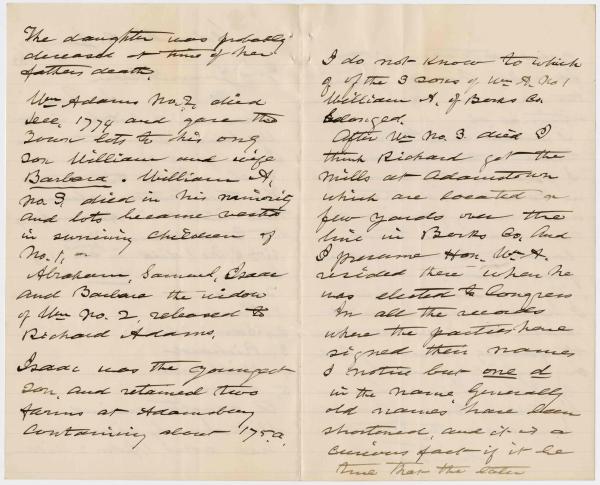 The daughter was probably
deceased at time of her
fathers death.
Wm Adams No. 2, died
Dec. 1774 and gave the
Town lots to his only
son William and wife
Barbara. William A.
No. 3. died in his minority
and lots became vested
in surviving children of
No. 1, or
Abraham, Samuel, Isaac
and Barbara the widow
of Wm No. 2, released to
Richard Adams.
Isaac was the youngest
son, and retained two
farms at Adamsburg
containing about 175 a.
I do not know to which
of the 3 sons of Wm A. No 1
William A. of Berks Co.
belonged.
After Wm No. 3. died I
think Richard got the
Mills at Adamstown
which are located a
few yards over the
line in Berks Co. And
I presume Hon. Wm A.
resided there when he
was elected to Congress
In all the records
where the parties have
signed their names
I notice but one d
in the name. Generally
old names have been
shortened, and it is a
curious fact if it be
true that the later